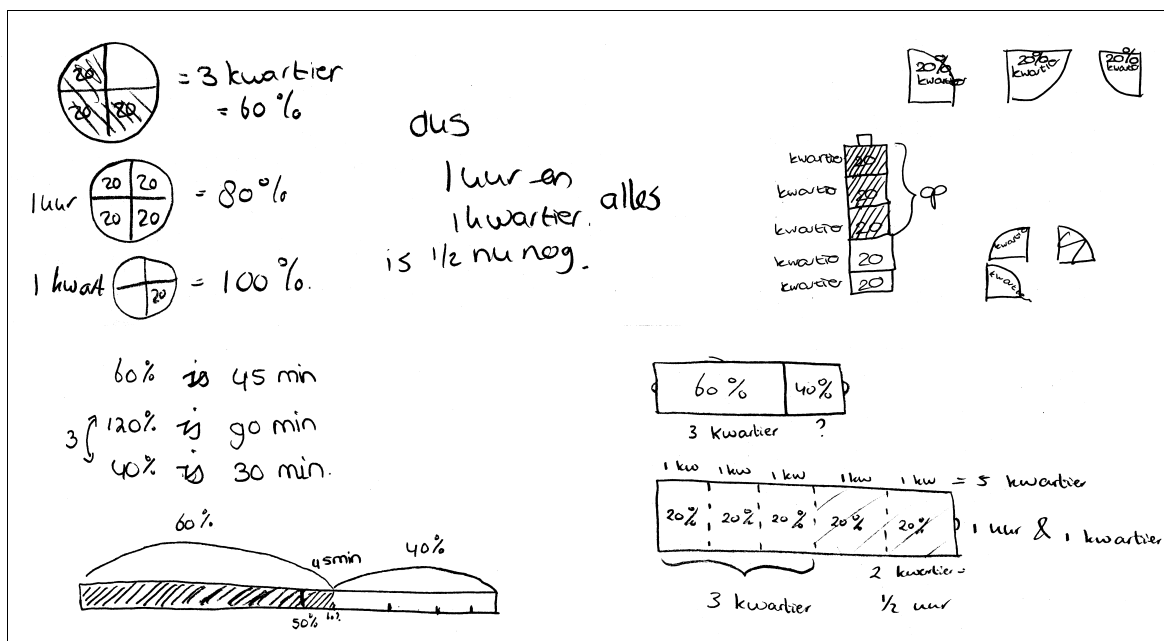 20
20 20
= 3 kwartier
= 60%
1 uur
20 20
20 20
= 80%
1 kwart
20
= 100%.
dus
1 uur en
1 kwartier.
is 1/2 nu nog.
alles
20%
kwartier
20%
kwartier
20%
kwartier
kwartier 20
kwartier 20
kwartier 20
kwartier 20
kwartier 20
op
kwartier
60% is 45 min
120% is 90 min
3
40% is 30 min.
60%
45min
40%
50%
60%
60% 40%
3 kwartier ?
1 kw 1 kw 1 kw 1 kw 1 kw = 5 kwartier
20% 20% 20% 20% 20%
1 uur & 1 kwartier
2 kwartier =
3 kwartier 1/2 uur